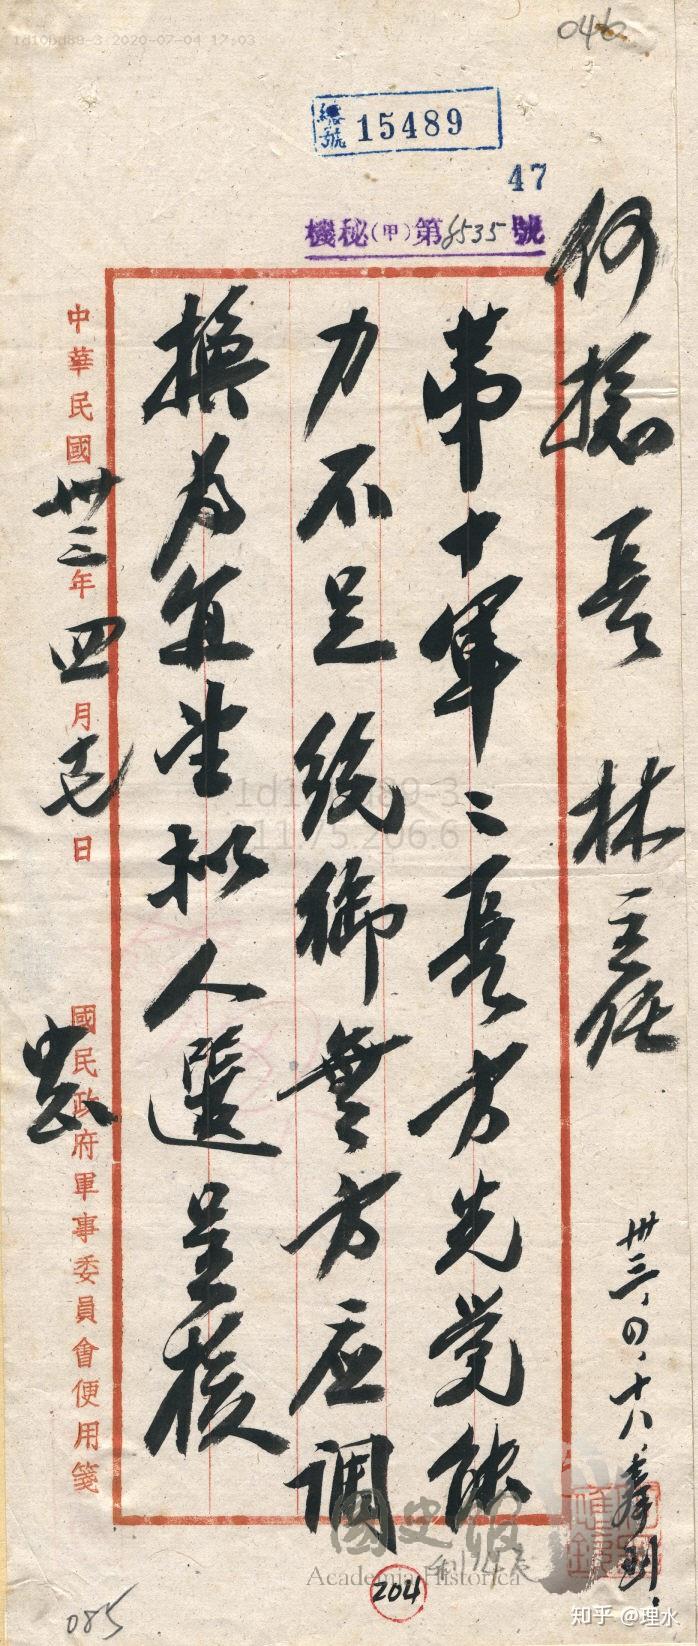 1d10bd89-3 2020-07-04 17:03
046
總號 15489
47
機秘(甲)第6535號
何總長 林主任
第十軍々長方光覺能
力不足統御無方应調
換為宜望拟人選呈核
中華民國卅三年四月十七日
國民政府軍事委員會便用箋
卅三、四、十八、奉到.
1d10bd89-3
211.75.206.6
國史館
Academia Historica
204
085
知乎 @理水